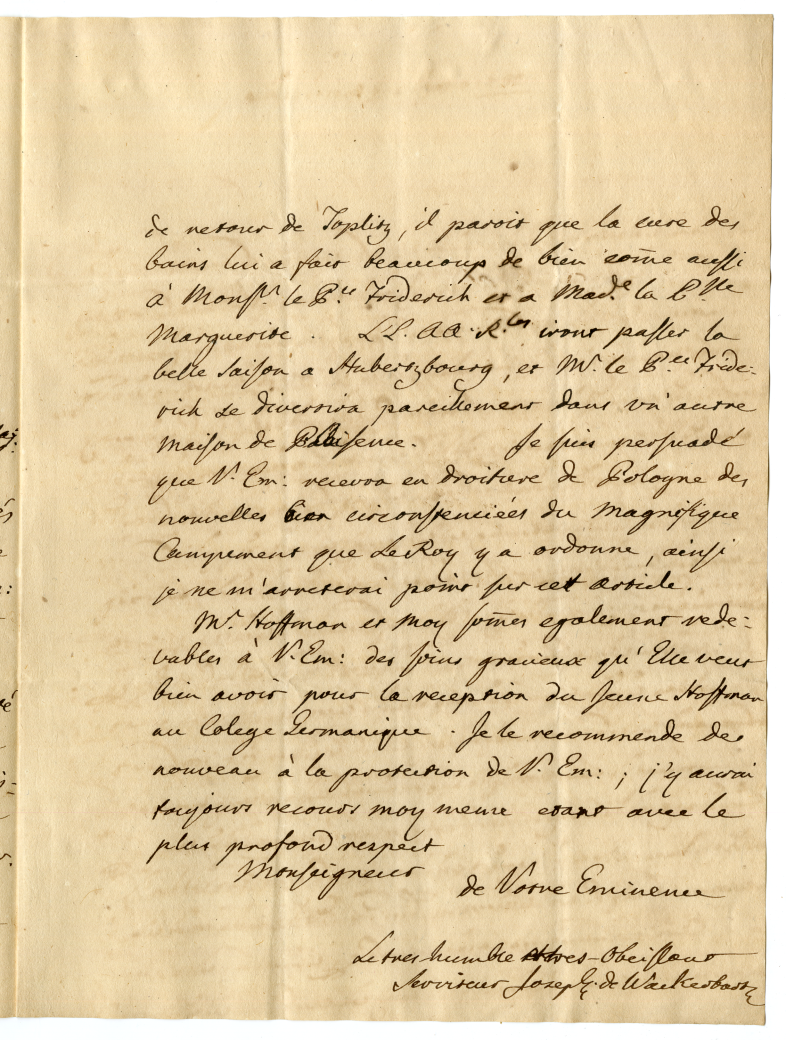 de retour de Toplitz, il paroit que la cure des
bains lui a fait beaucoup de bien com̄e aussi
à Monsr. le Pce Friderich et a Made la Psse
Marguerite. LL. AA. Rles iront passer la
belle saison a Hubertzbourg, et Mr. le Pce Fride-
rich se divertira pareillement dans un' autre
maison de
Je suis persuadé
que V. Em: recevra en droiture de Pologne des
nouvelles bien circonstenciées du magnifique
Campement que Le Roy y a ordonné, ainsi
je ne m'arreterai point sur cet article.
Mr. Hoffman et moy som̄es egalement rede-
vables à V. Em: des soins gracieux qu'Elle veut
bien avoir pour la reception du jeune Hoffman
au Colege Germanique. Je le recommende de
nouveau à la protection de V. Em: ; j'y aurai
toujours recours moy meme etant avec le
plus profond respect
Monseigneur
de Votre Eminence
Le tres-humble et tres-Obeissant
Serviteur Joseph de Wackerbarth